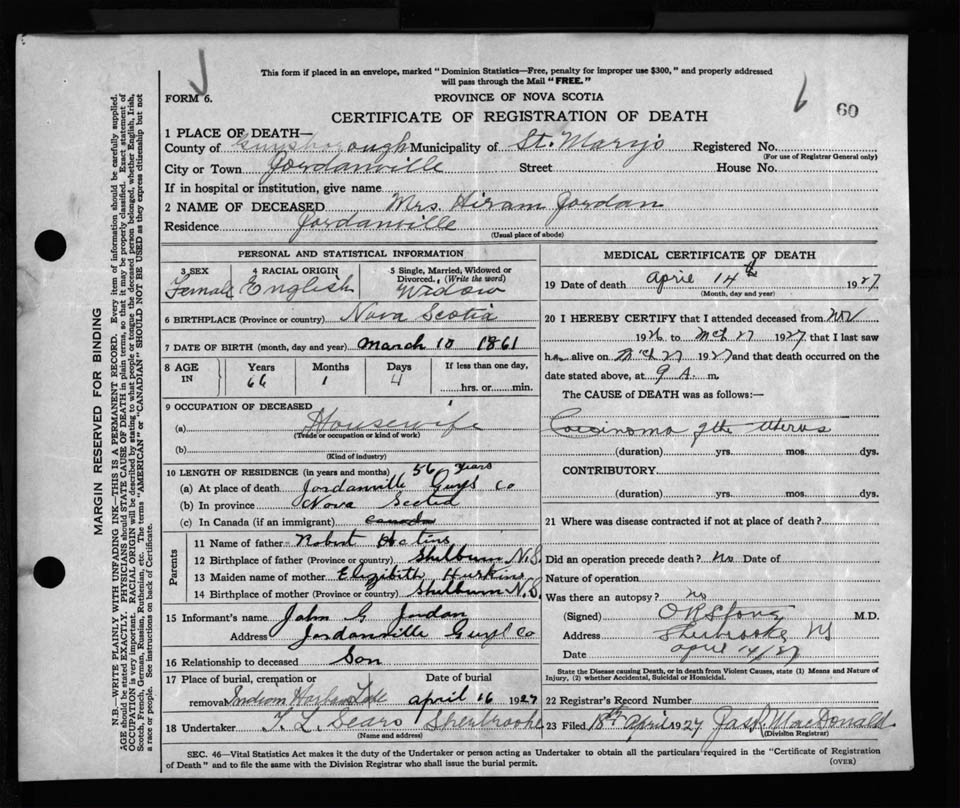 This form if placed in an envelope, marked "Dominion Statistics—Free, penalty for improper use $300," and properly addressed
will pass through the Mail "FREE."
FORM 6.
PROVINCE OF NOVA SCOTIA
6 60
CERTIFICATE OF REGISTRATION OF DEATH
1 PLACE OF DEATH—
County of Guysborough Municipality of St. Mary's Registered No.
(For use of Registrar General only)
City or Town Jordanville Street House No.
If in hospital or institution, give name
2 NAME OF DECEASED Mrs. Hiram Jordan
Residence Jordanville
(Usual place of abode)
PERSONAL AND STATISTICAL INFORMATION
3 SEX 4 RACIAL ORIGIN 5 Single, Married, Widowed or
Divorced. (Write the word)
Female English Widow
6 BIRTHPLACE (Province or country) Nova Scotia
7 DATE OF BIRTH (month, day and year) March 10 1861
8 AGE IN Years Months Days If less than one day,
66 1 4 hrs. or min.
9 OCCUPATION OF DECEASED
(a) Housewife
(Trade or occupation or kind of work)
(b)
(Kind of industry)
10 LENGTH OF RESIDENCE (in years and months) 56 years
(a) At place of death Jordanville Guys Co
(b) In province Nova Scotia
(c) In Canada (if an immigrant) Canada
Parents
11 Name of father Robert
12 Birthplace of father (Province or country) Shelburn N.S.
13 Maiden name of mother Elizibith
14 Birthplace of mother (Province or country) Shelburn N.S.
15 Informant's name John G Jordan
Address Jordanville Guys Co
16 Relationship to deceased Son
17 Place of burial, cremation or Date of burial
removal Indian Harbor Lake April 16 1927
18 Undertaker T. L. Sears Sherbrooke
(Name and address)
MEDICAL CERTIFICATE OF DEATH
19 Date of death April 14th 1927
(Month, day and year)
20 I HEREBY CERTIFY that I attended deceased from Nov
1926 to Mch 27 1927 that I last saw
h alive on Mch 27 1927 and that death occurred on the
date stated above, at 9 A. m.
The CAUSE of DEATH was as follows:—
Carcinoma of the Uterus
(duration) yrs. mos. dys.
CONTRIBUTORY
(duration) yrs. mos. dys.
21 Where was disease contracted if not at place of death?
Did an operation precede death? No Date of
Nature of operation
Was there an autopsy? No
(Signed) M.D.
Address Sherbrooke NS
Date April 14/27
State the Disease causing Death, or in death from Violent Causes, state (1) Means and Nature of
Injury, (2) whether Accidental, Suicidal or Homicidal.
22 Registrar's Record Number
23 Filed 18th April 1927 Jas P. MacDonald
(Division Registrar)
SEC. 46—Vital Statistics Act makes it the duty of the Undertaker or person acting as Undertaker to obtain all the particulars required in the "Certificate of Registration
of Death" and to file the same with the Division Registrar who shall issue the burial permit.
(OVER)
MARGIN RESERVED FOR BINDING
N.B.—WRITE PLAINLY WITH UNFADING INK—THIS IS A PERMANENT RECORD. Every item of information should be carefully supplied.
AGE should be stated EXACTLY. PHYSICIANS should STATE CAUSE OF DEATH in plain terms, so that it may be properly classified. Exact statement of
OCCUPATION is very important. RACIAL ORIGIN will be described by stating to what people or tongue the deceased person belonged, whether English, Irish,
Scotch, French, German, Russian, Ruthenian, etc. The terms "AMERICAN" or "CANADIAN" SHOULD NOT BE USED as they express citizenship but not
a race or people. See instructions on back of Certificate.